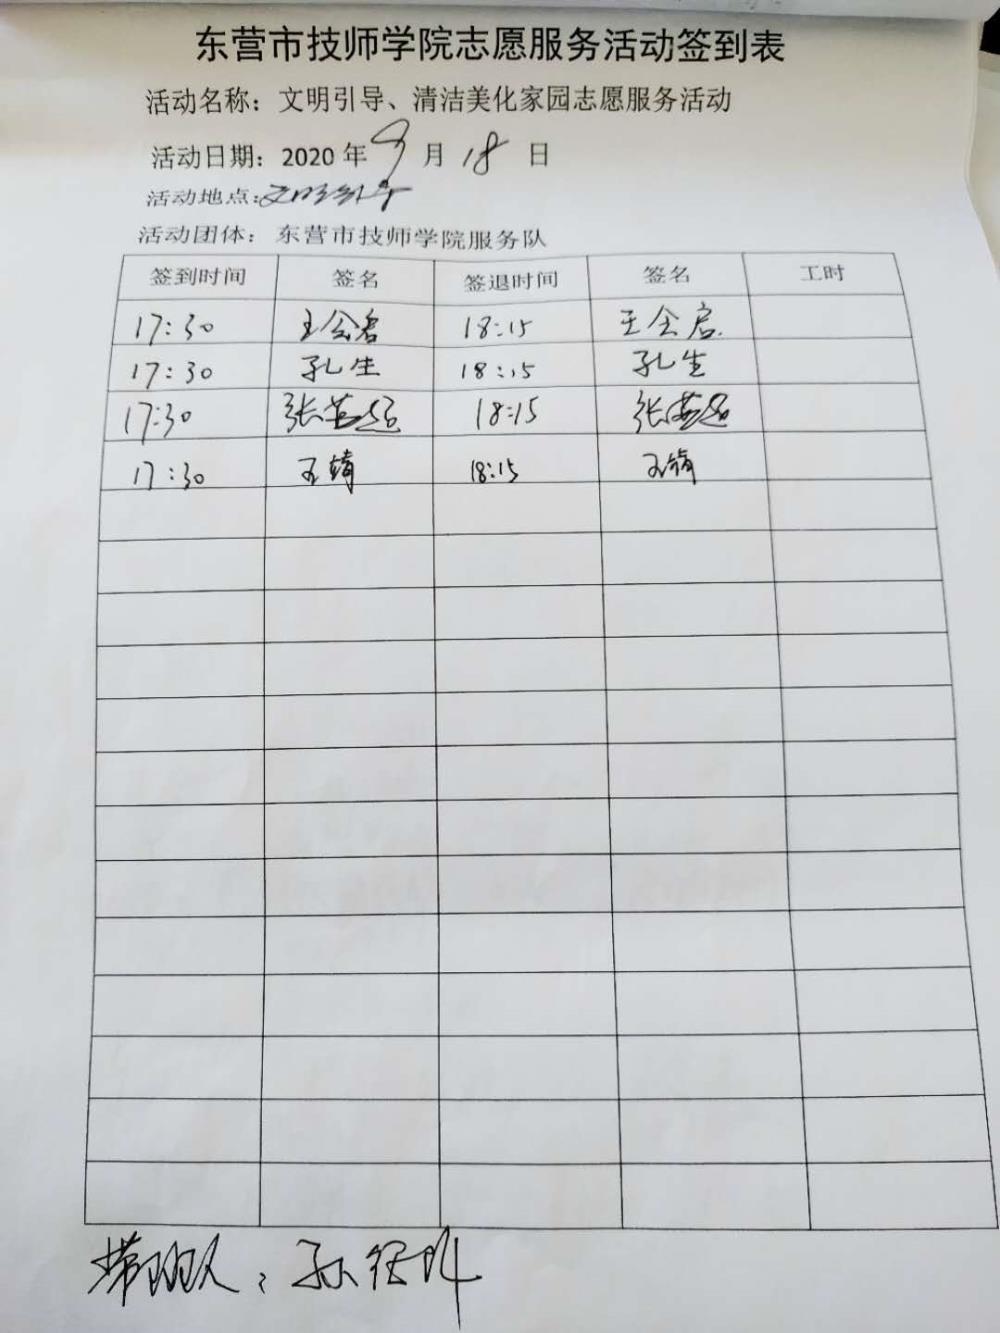 东营市技师学院志愿服务活动签到表
活动名称：文明引导、清洁美化家园志愿服务活动
活动日期：2020 年 9 月 18 日
活动地点：文明
活动团体：东营市技师学院服务队
签到时间 签名 签退时间 签名 工时
17:30 王会启 18:15 王会启
17:30 孔生 18:15 孔生
17:30 张 18:15 张
17:30 王靖 18:15 王靖
带班人：孙